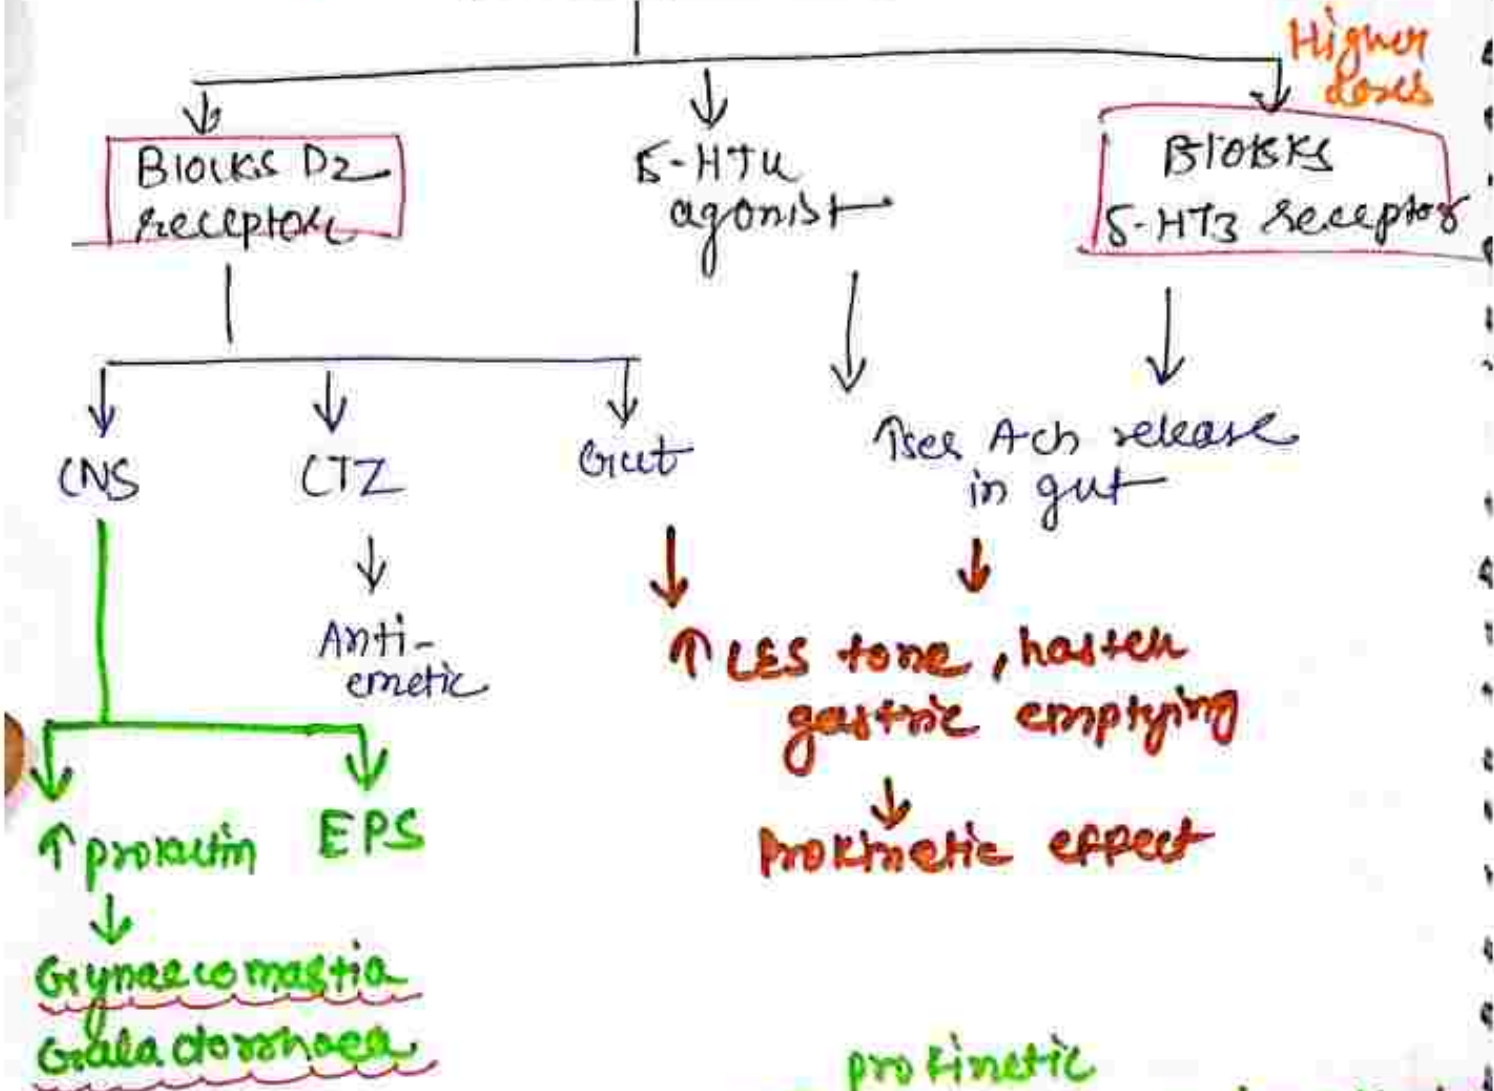 Higher
doses
Blocks D2
receptor
5-HT4
agonist
Blocks
5-HT3 receptor
CNS
CTZ
Gut
↑ses Ach release
in gut
Anti-
emetic
↑ LES tone, hasten
gastric emptying
↑ prolactin
EPS
Prokinetic effect
Gynaecomastia
Galactorrhoea
prokinetic